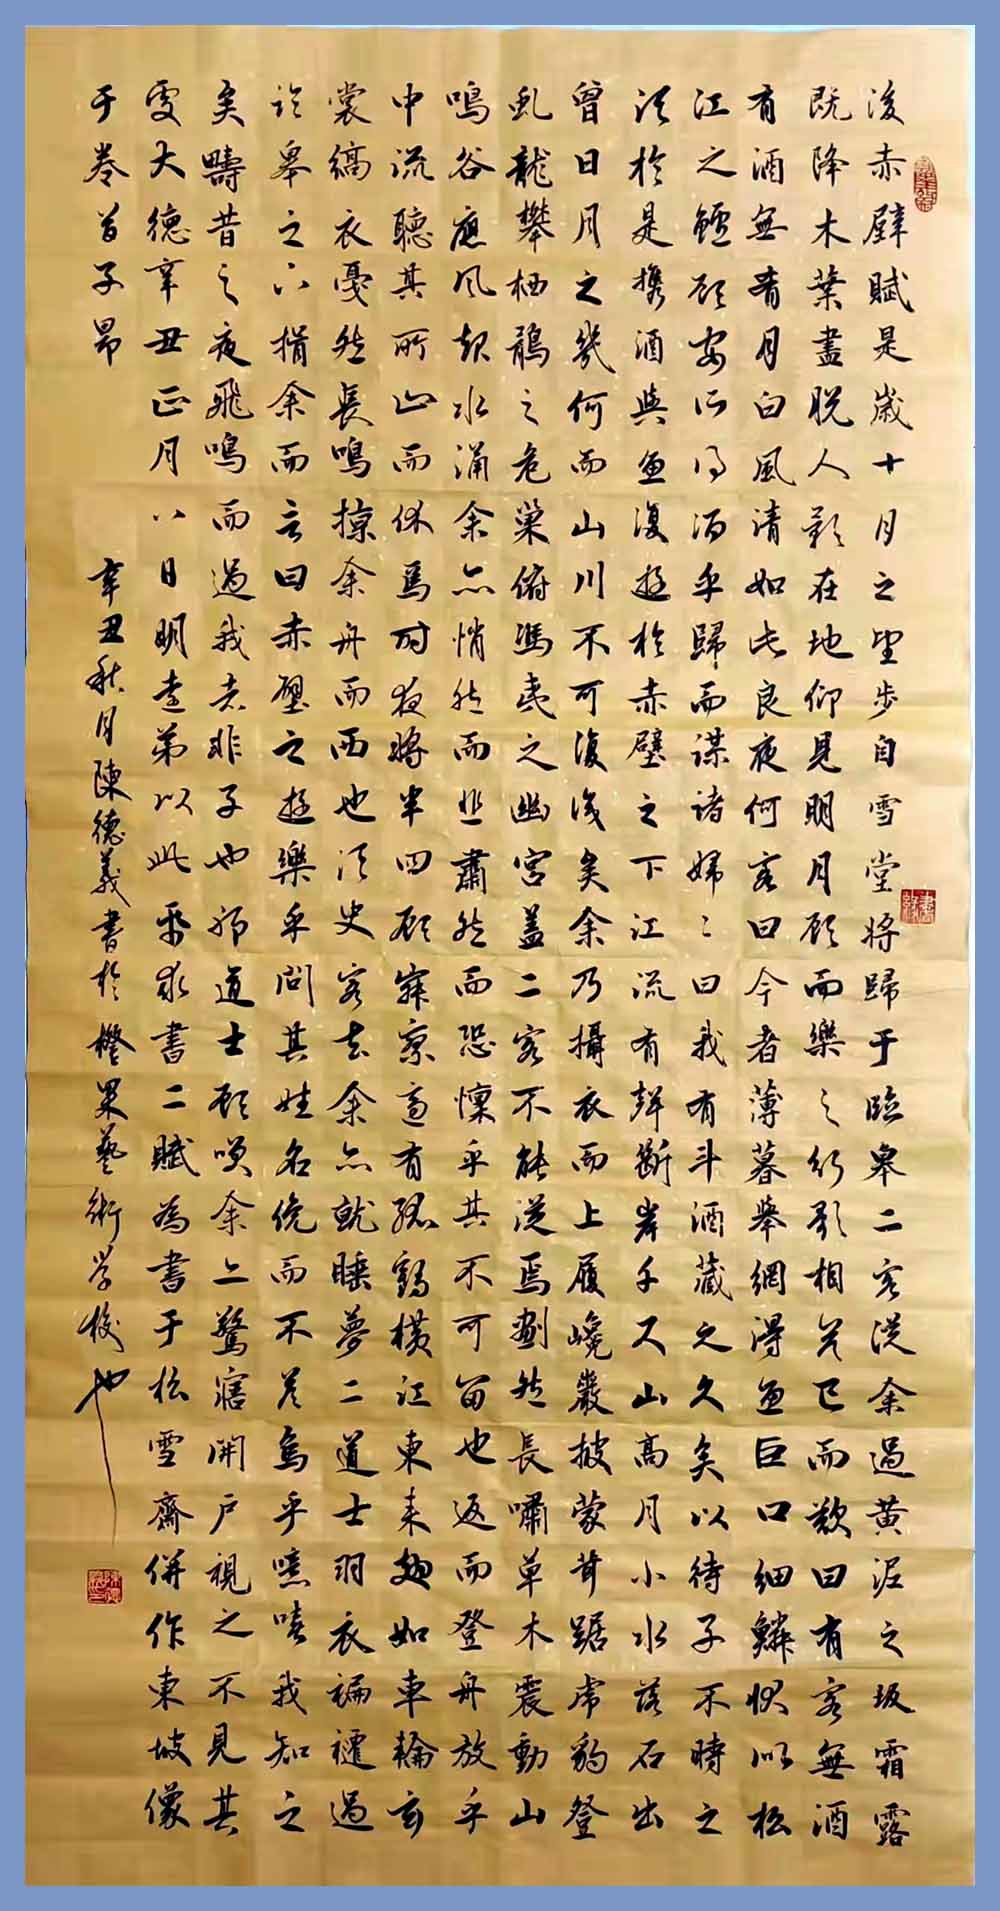 後赤壁賦是歲十月之望步自雪堂將歸于臨皋二客從余過黃泥之坂霜露
既降木葉盡脫人影在地仰見明月顧而樂之行歌相答已而歎曰有客無酒
有酒無肴月白風清如此良夜何客曰今者薄暮舉網得魚巨口細鱗狀似松
江之鱸顧安所得酒乎歸而謀諸婦〻曰我有斗酒藏之久矣以待子不時之
須於是攜酒與魚復遊於赤壁之下江流有聲斷岸千尺山高月小水落石出
曾日月之幾何而山川不可復識矣余乃攝衣而上履巉巖披蒙茸踞虎豹登
虬龍攀栖鶻之危巢俯馮夷之幽宮蓋二客不能從焉劃然長嘯草木震動山
鳴谷應風起水涌余亦悄然而悲肅然而恐懍乎其不可留也返而登舟放乎
中流聽其所止而休焉時夜將半四顧寂寥適有孤鶴橫江東來翅如車輪玄
裳縞衣戛然長鳴掠余舟而西也須臾客去余亦就睡夢二道士羽衣褊褼過
臨皋之下揖余而言曰赤壁之遊樂乎問其姓名俛而不答烏乎噫嘻我知之
矣疇昔之夜飛鳴而過我者非子也耶道士顧笑余亦驚寤開戶視之不見其
處大德辛丑正月八日明遠弟以此紙求書二賦為書于松雪齋併作東坡像
于卷首子昂
辛丑秋月陳德義書於橙果藝術學校也